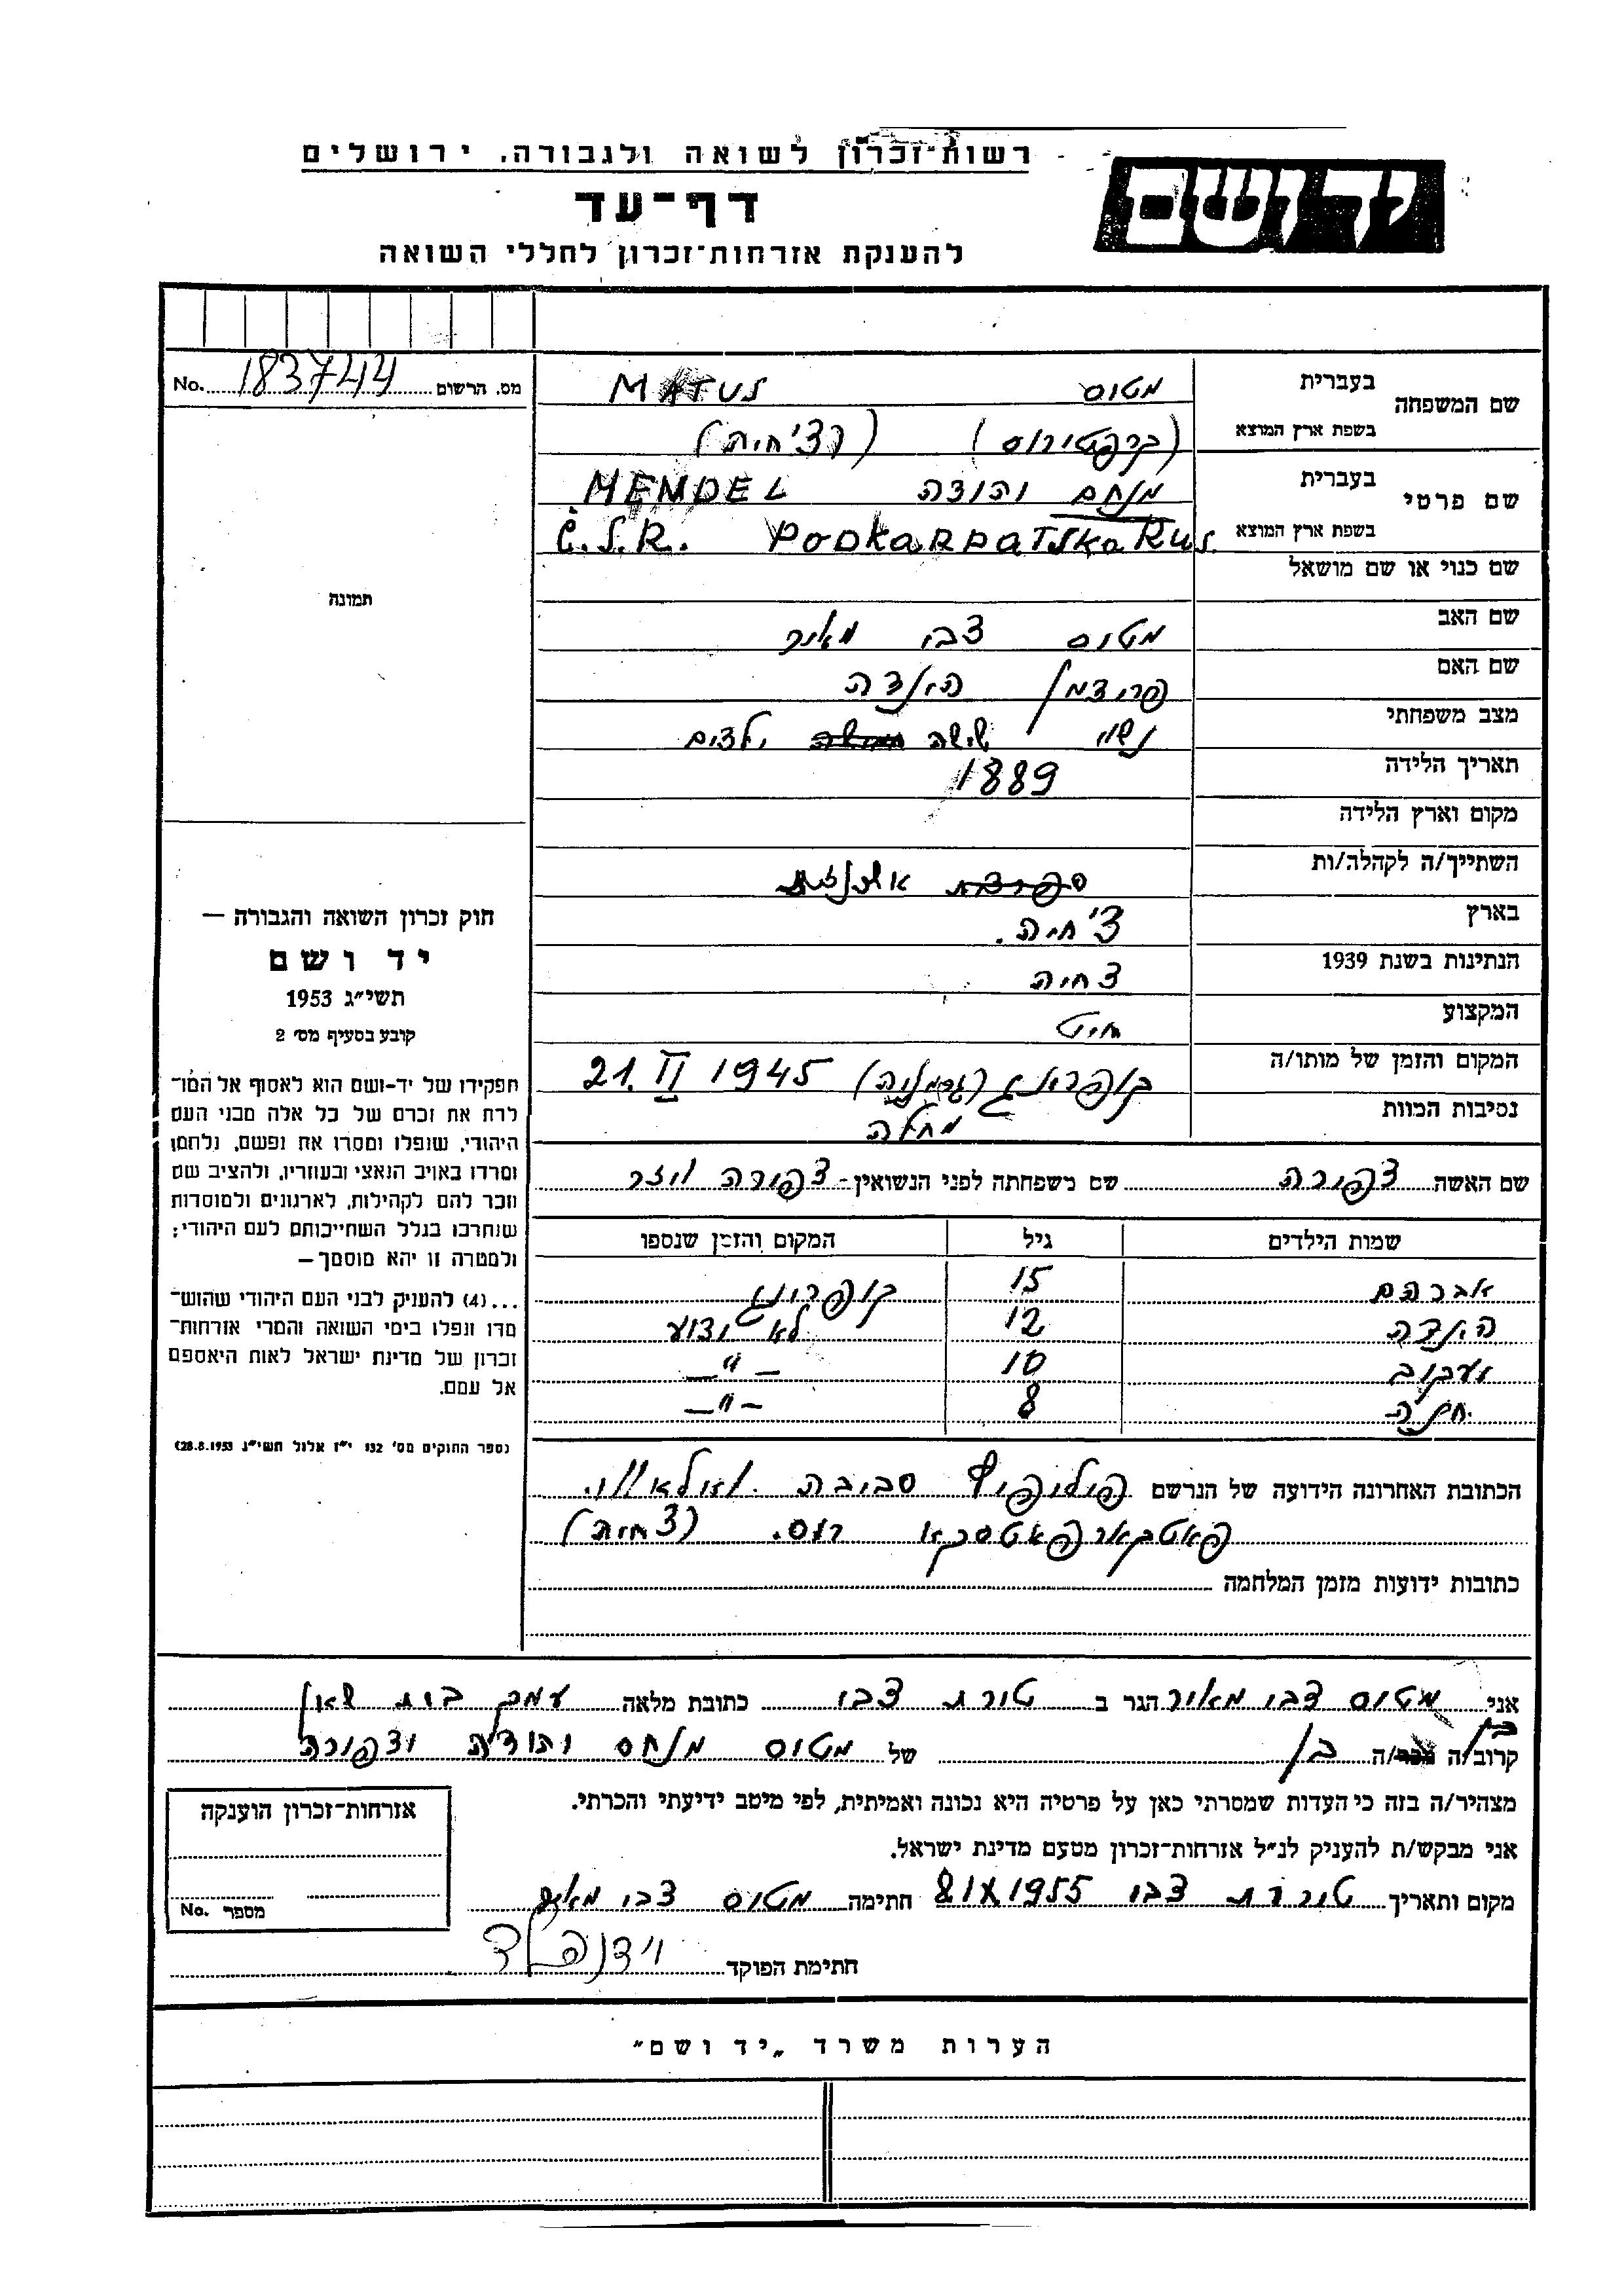 רשות-זכרון לשואה ולגבורה, ירושלים
יד ושם
דף-עד
להענקת אזרחות-זכרון לחללי השואה
מס. הרשום 183744 No.
תמונה
חוק זכרון השואה והגבורה —
יד ושם
תשי״ג 1953
קובע בסעיף מס׳ 2
תפקידו של יד-ושם הוא לאסוף אל המו-
לדת את זכרם של כל אלה מבני העם
היהודי, שנפלו ומסרו את נפשם, נלחמו
ומרדו באויב הנאצי ובעוזריו, ולהציב שם
וזכר להם לקהילות, לארגונים ולמוסדות
שנחרבו בגלל השתייכותם לעם היהודי;
ולמטרה זו יהא מוסמך —
...(4) להעניק לבני העם היהודי שהוש-
מדו ונפלו בימי השואה והמרי אזרחות-
זכרון של מדינת ישראל לאות היאספם
אל עמם.
(ספר החוקים מס׳ 132 י״ז אלול תשי״ג 28.8.1953)
שם המשפחה בעברית מטוס MATUS
בשפת ארץ המוצא
שם פרטי בעברית מנחם יהודה MENDEL
בשפת ארץ המוצא Č.S.R. PODKARPATSKA RUS.
שם כנוי או שם מושאל
שם האב מטוס צבי מאיר
שם האם פרידמן הינדה
מצב משפחתי נשוי ששה ילדים
תאריך הלידה 1889
מקום וארץ הלידה
השתייך/ה לקהלה/ות אשכנזית
בארץ צ׳חיה.
הנתינות בשנת 1939 צחיה
המקצוע חיט
המקום והזמן של מותו/ה קופרינג (גרמניה) 21. II 1945
נסיבות המוות מחלה
שם האשה צפורה שם משפחתה לפני הנשואין - צפורה ויזר
שמות הילדים גיל המקום והזמן שנספו
אברהם 15 קופרינג
הינדה 12 לא ידוע
יעקוב 10 — " —
חנה 8 — " —
הכתובת האחרונה הידועה של הנרשם פיליפיץ סביבת
פאטקארפאטסקא רוס. (צחיה)
כתובות ידועות מזמן המלחמה
אני מטוס צבי מאיר הגר ב טירת צבי כתובת מלאה עמק בית שאן
קרוב/ה בן של מטוס מנחם יהודה וצפורה
מצהיר/ה בזה כי העדות שמסרתי כאן על פרטיה היא נכונה ואמיתית, לפי מיטב ידיעתי והכרתי.
אני מבקש/ת להעניק לנ״ל אזרחות-זכרון מטעם מדינת ישראל.
מקום ותאריך טירת צבי 8/X 1955 חתימה מטוס צבי מאיר
חתימת הפוקד וידנפלד
אזרחות-זכרון הוענקה
מספר No.
הערות משרד „יד ושם״